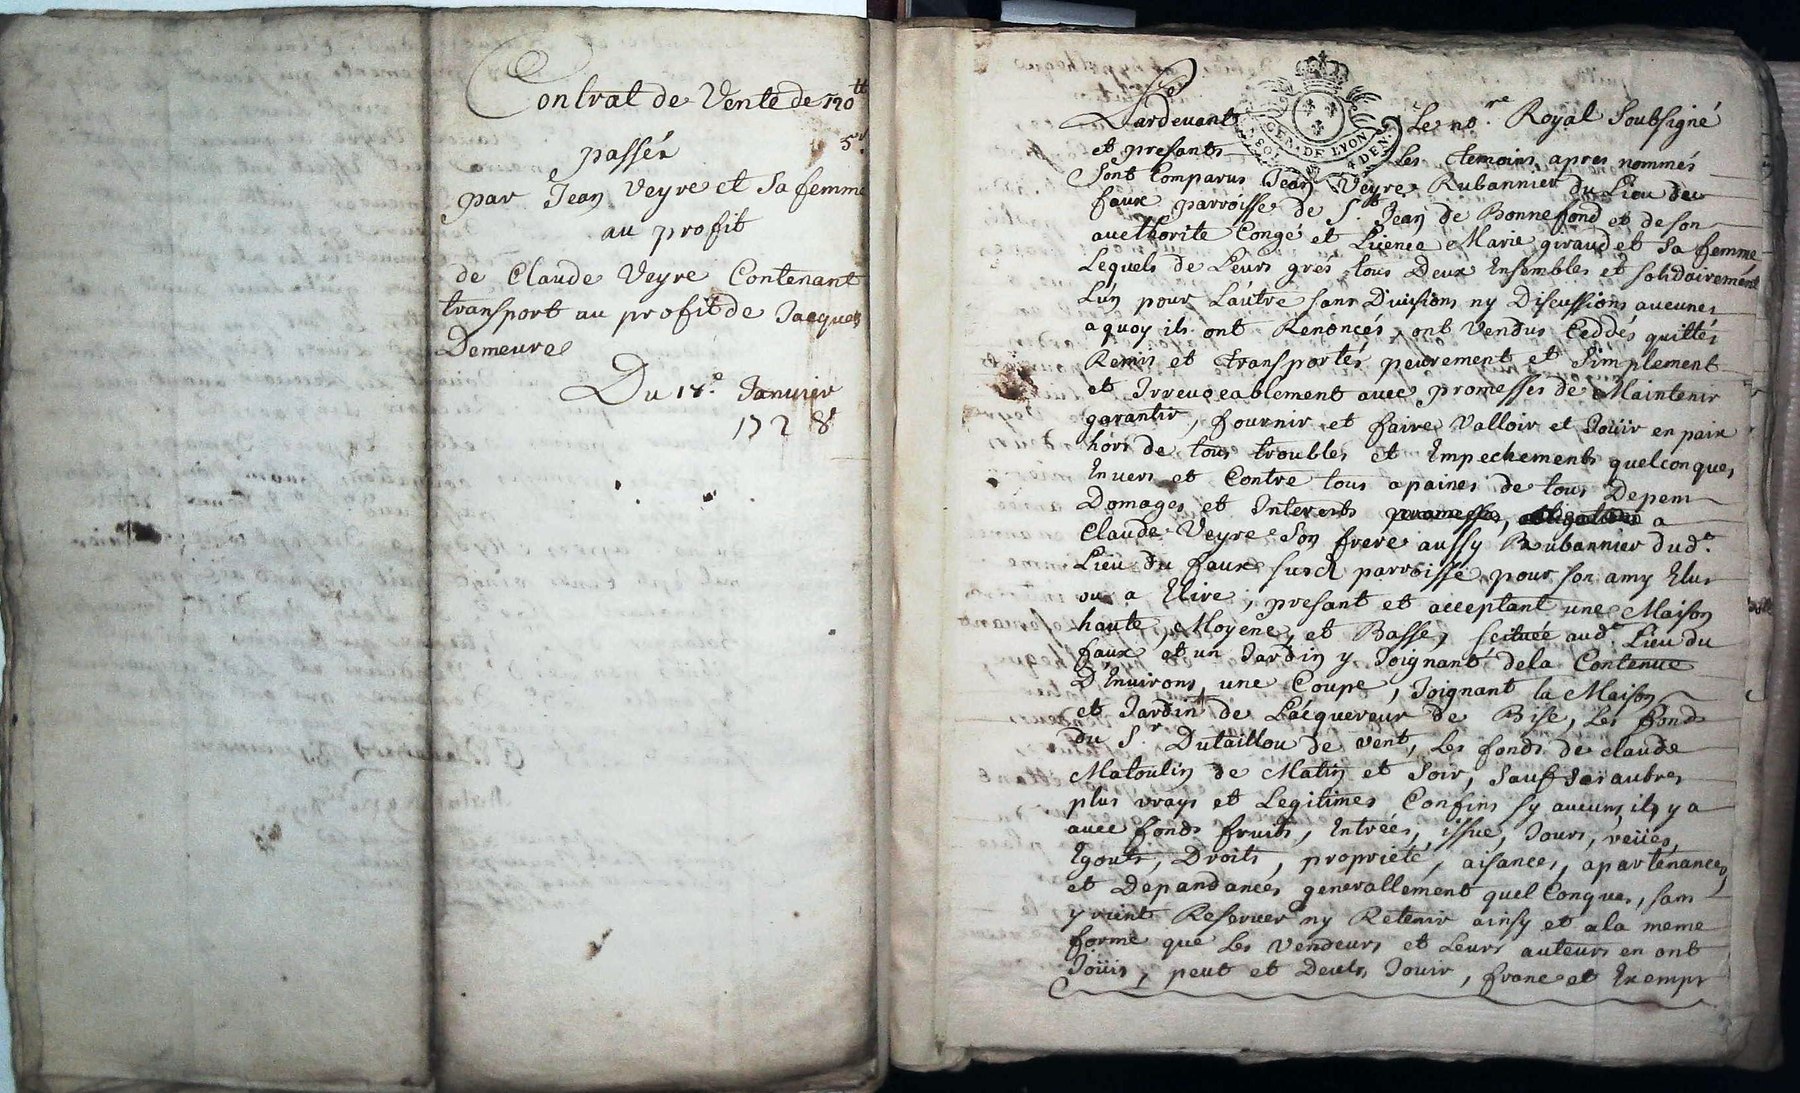 Contrat de Vente de 120tt
5s.
passée
par Jean Veyre et Sa femme
au profit
de Claude Veyre Contenant
transport au profit de Jacques
Demeure
Du 18e. Janvier
1728
Pardevant Le nore. Royal Soubsigné
GEN. DE LYON
SOL. 4 DEN.
et presants Les temoins apres nommés
Sont Comparus Jean Veyre Rubannier du Lieu de
faux parroisse de St. Jean de Bonnefond et de son
aucthorité Congé et Licence Marie giraudet Sa femme
Lequels de Leurs gres tous Deux Ensembles et solidairement
Lun pour Lautre sans Divisions ny Discussions aucunes
a quoy ils ont Renoncés, ont Vendus Ceddés quittés
Remis et transportés peurement et Simplement
et Irreuocablement avec promesses de Maintenir
garantir, fournir et faire Valloir et Joüir en paix
hors de tous troubles et Empechements quelconques
Envers et Contre tous a paines de tous Depens
Domages et Interests promesses, obligations a
Claude Veyre Son frere aussy Rubannier dude.
Lieu du faux susd. parroisse pour son amy Elus
ou a Elire, presant et acceptant une Maison
haute, Moyene, et Basse, scituée aude. Lieu du
faux et un Jardin y Joignant dela Contenue
D'Environs une Coupe, Joignant la Maison
et Jardin de Lacquereur de Bise, Les fonds
du Sr. Dutaillou de vent, Les fonds de claude
Matoulin de Matin et Soir, Sauf Ses autres
plus vrays et Legitimes Confins sy aucuns il y a
avec fonds fruits, Entrées, issue, Jours, veües,
Egouts, Droits, proprieté, aisances, apartenances,
et Dependances generallement quel Conques, sans
y rient Reserver ny Retenir ainsy et a la meme
forme que Les Vendeurs et Leurs auteurs en ont
Joüis, peut et Deuts Jouir, franc et Exempt